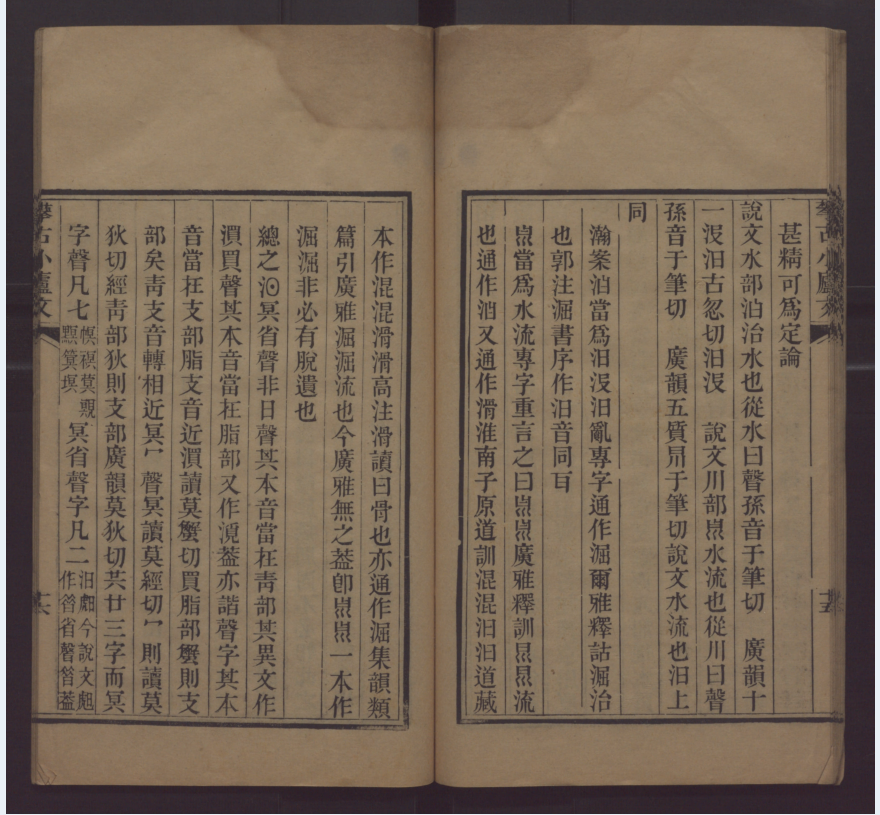 甚精可爲定論
說文水部汩治水也從水曰聲孫音于筆切 廣韻十
一沒汩古忽切汩沒 說文川部𡿯水流也從川曰聲
孫音于筆切 廣韻五質𡿯于筆切說文水流也汩上
同
瀚案汩當爲汩沒汩亂專字通作淈爾雅釋詁淈治
也郭注淈書序作汩音同耳
𡿯當爲水流專字重言之曰𡿯𡿯廣雅釋訓𡿯𡿯流
也通作汩又通作滑淮南子原道訓混混汩汩道藏
本作混混滑滑高注滑讀曰骨也亦通作淈集韻類
篇引廣雅淈淈流也今廣雅無之葢卽𡿯𡿯一本作
淈淈非必有脫遺也
總之汨冥省聲非日聲其本音當在靑部其異文作
㵋買聲其本音當在脂部又作𣹟葢亦諧聲字其本
音當在支部脂支音近㵋讀莫蟹切買脂部蟹則支
部矣靑支音轉相近冥冖聲冥讀莫經切冖則讀莫
狄切經靑部狄則支部廣韻莫狄切共廿三字而冥
字聲凡七
冥省聲字凡二
攀古小廬文
十五
攀古小廬文
十六